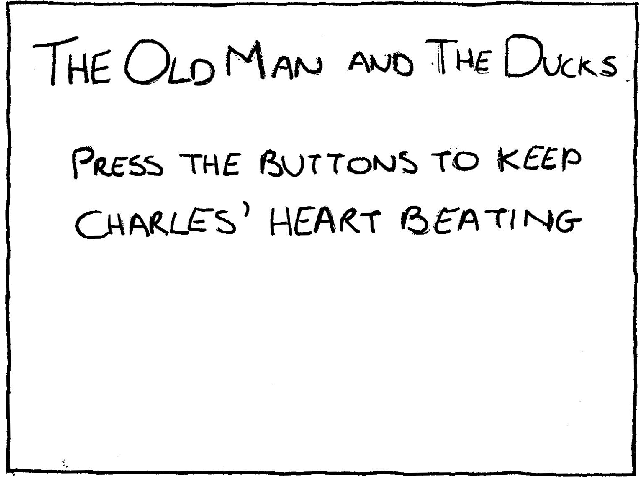 THE OLD MAN AND THE DUCKS
PRESS THE BUTTONS TO KEEP
CHARLES' HEART BEATING